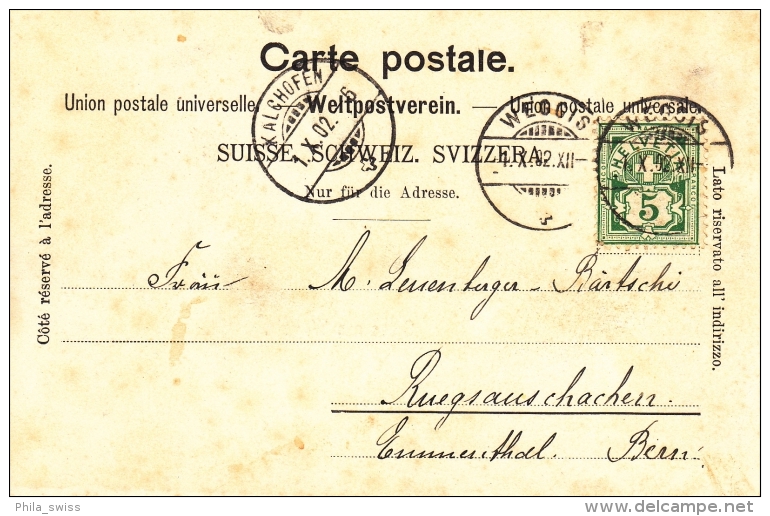 Carte postale.
Union postale universelle. — Weltpostverein. — Union postale universale.
SUISSE. SCHWEIZ. SVIZZERA.
Nur für die Adresse.
Côté réservé à l'adresse.
Lato riservato all' indirizzo.
KALCHOFEN
1.X.02.-6
WEGGIS
1.X.02.XII-
WEGGIS
X.02.XII-
HELVETIA
FRANCO
5
Frau M. Leuenberger - Bärtschi
Ruegsauschachen.
Emmenthal. Bern.
Phila_swiss
delcampe.net